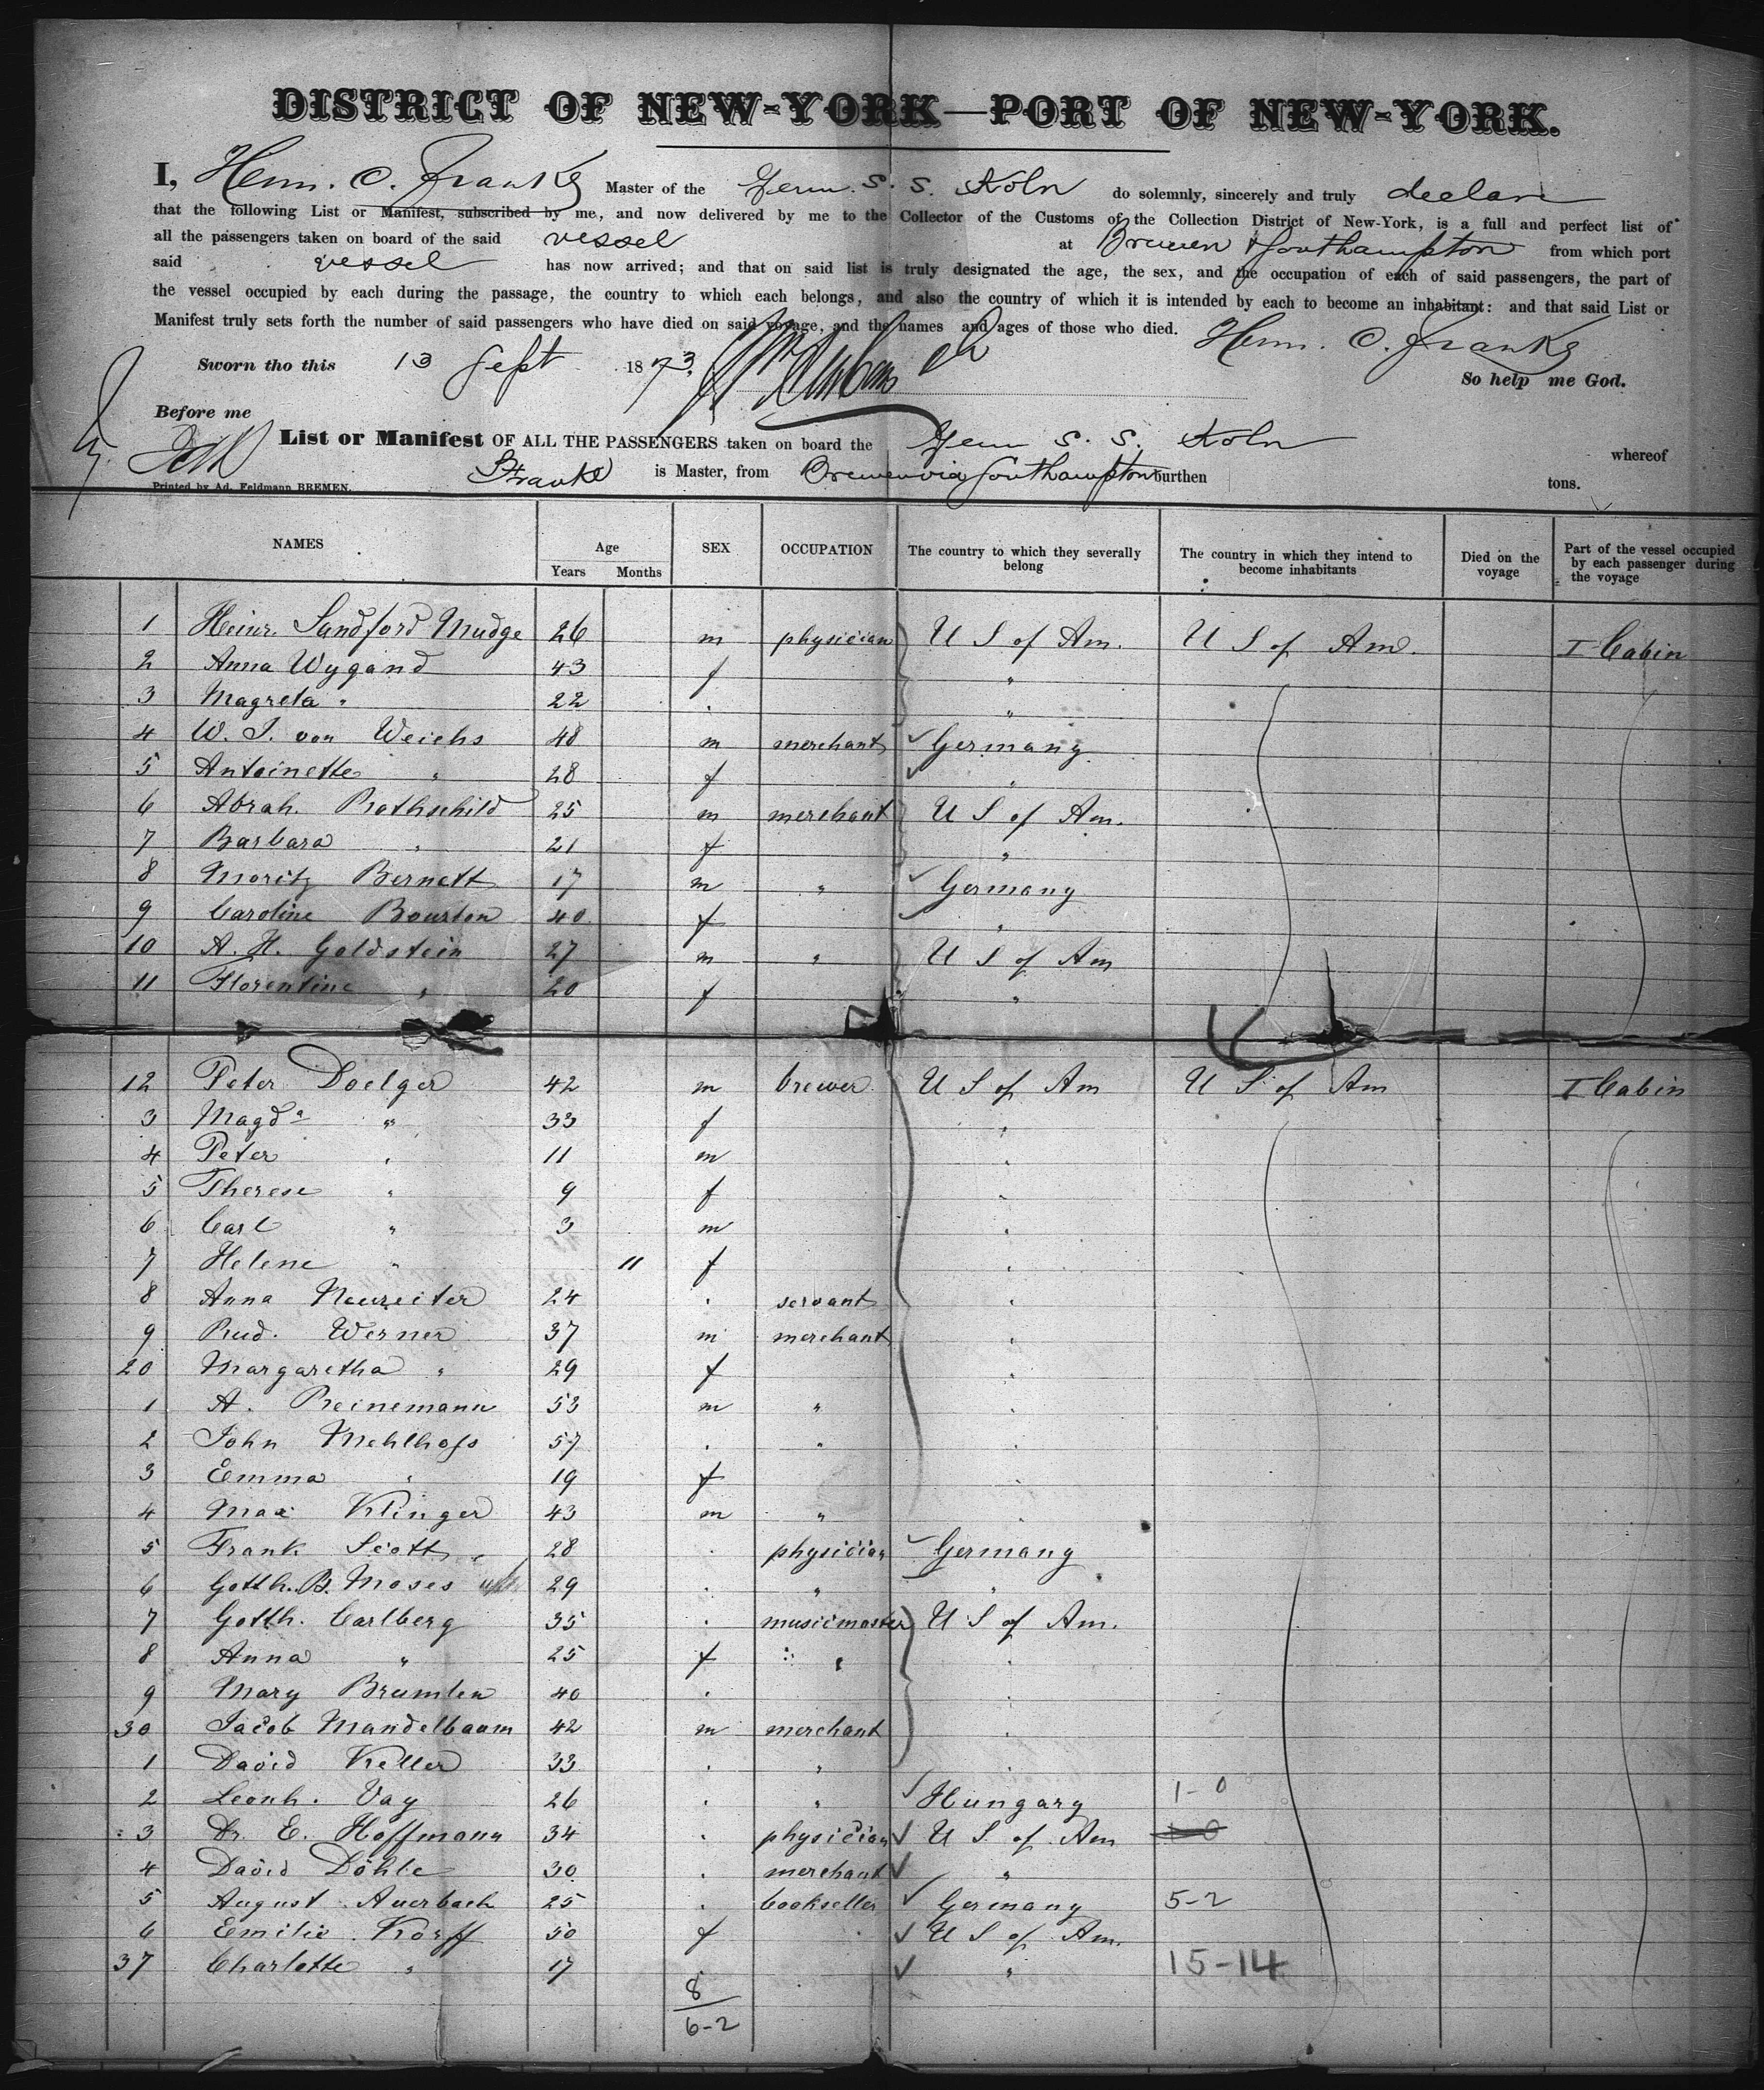 DISTRICT OF NEW-YORK—PORT OF NEW-YORK.
I, Herm. C. Franke Master of the Germ. S. S. Koln do solemnly, sincerely and truly declare
that the following List or Manifest, subscribed by me, and now delivered by me to the Collector of the Customs of the Collection District of New-York, is a full and perfect list of
all the passengers taken on board of the said vessel at Bremen & Southampton from which port
said vessel has now arrived; and that on said list is truly designated the age, the sex, and the occupation of each of said passengers, the part of
the vessel occupied by each during the passage, the country to which each belongs, and also the country of which it is intended by each to become an inhabitant: and that said List or
Manifest truly sets forth the number of said passengers who have died on said voyage, and the names and ages of those who died. Herm. C. Franke
Sworn tho this 13 Sept 1873.
So help me God.
Before me
List or Manifest OF ALL THE PASSENGERS taken on board the Germ S. S. Koln whereof
Franke is Master, from Bremen via Southampton burthen tons.
Printed by Ad. Feldmann BREMEN.
NAMES Age SEX OCCUPATION The country to which they severally belong The country in which they intend to become inhabitants Died on the voyage Part of the vessel occupied by each passenger during the voyage
Years Months
1 Heinr. Sandford Mudge 26 m physician U S of Am. U S of Am. I Cabin
2 Anna Wygand 43 f "
3 Magreta " 22 . "
4 W. J. von Weichs 48 m merchant Germany
5 Antoinette " 28 f "
6 Abrah. Rothschild 25 m merchant U S of Am.
7 Barbara " 21 f "
8 Moritz Bernett 17 m " Germany
9 Caroline Bourton 40 f "
10 A. H. Goldstein 27 m " U S of Am
11 Florentine " 20 f "
12 Peter Doelger 42 m brewer U S of Am U S of Am I Cabin
3 Magda " 33 f "
4 Peter " 11 m "
5 Therese " 9 f "
6 Carl " 3 m "
7 Helene " 11 f "
8 Anna Neureiter 24 . servant "
9 Rud. Werner 37 m merchant "
20 Margaretha " 29 f "
1 A. Reinemann 53 m " "
2 John Mehlhofs 57 . " "
3 Emma " 19 f "
4 Max Klinger 43 m " "
5 Frank Scott 28 . physician Germany
6 Gotth. B. Moses 29 . " "
7 Gotth. Carlberg 35 . musicmaster U S of Am.
8 Anna " 25 f " "
9 Mary Brumlen 40 . "
30 Jacob Mandelbaum 42 m merchant "
1 David Keller 33 . " "
2 Leonh. Vay 26 . " Hungary 1-0
3 Dr. E. Hoffmann 34 . physician U S of Am
4 David Döhle 30 . merchant "
5 August Auerbach 25 . bookseller Germany 5-2
6 Emilie Korff 50 f U S of Am.
37 Charlotte " 17 . " 15-14
8
6-2